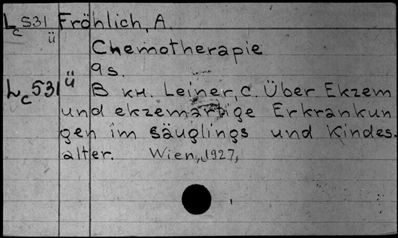 Lc531 Fröhlich, A.
ü
Chemotherapie
9s.
Lc531 ü В кн. Leiner, C. Über Ekzem
und ekzemartige Erkrankun
gen im Säuglings und Kindes.
alter. Wien, 1927,